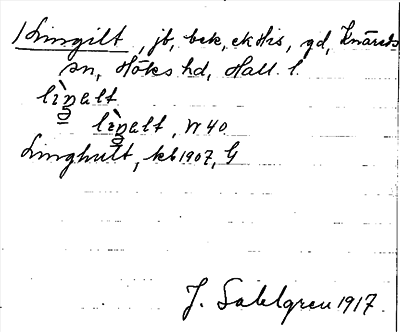 /Lingilt, jb, bek, ek His, gd, Knäreds
sn, Höks hd, Hall. l.
lìŋalt
lìŋalt, W 40.
Linghult, kb 1907, G
J. Sahlgren 1917.